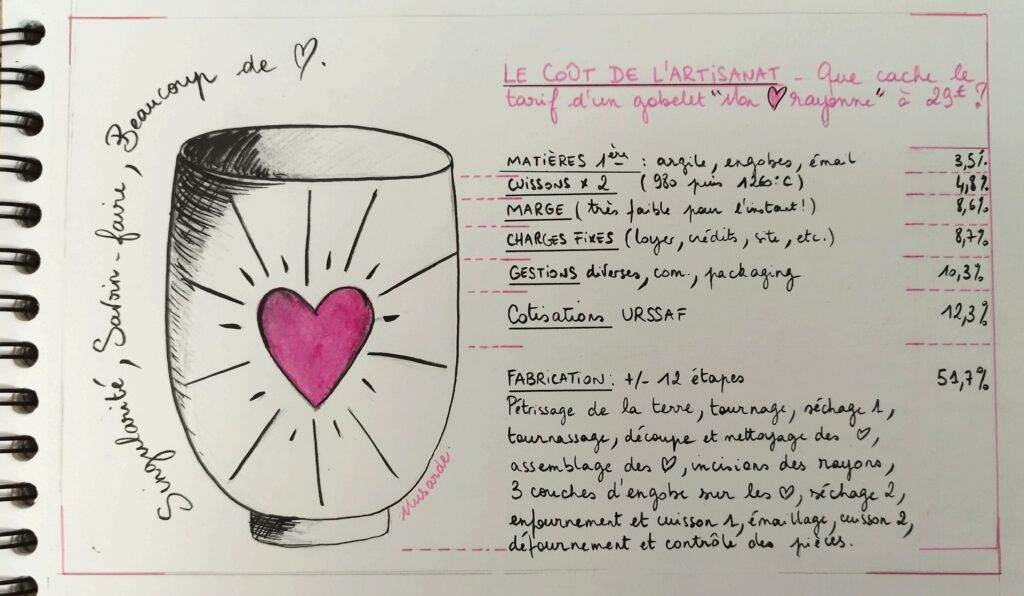 Singularité, Savoir-faire, Beaucoup de ♡.
LE COÛT DE L'ARTISANAT - Que cache le
tarif d'un gobelet "Mon ♥ rayonne" à 29€ ?
MATIÈRES 1ère : argile, engobes, émail 3,5%
CUISSONS x 2 (980 puis 1260°C) 4,8%
MARGE (très faible pour l'instant!) 8,6%
CHARGES FIXES (loyer, crédits, site, etc.) 8,7%
GESTIONS diverses, com., packaging 10,3%
Cotisations URSSAF 12,3%
FABRICATION : +/- 12 étapes 51,7%
Pétrissage de la terre, tournage, séchage 1,
tournassage, découpe et nettoyage des ♡,
assemblage des ♡, incisions des rayons,
3 couches d'engobe sur les ♡, séchage 2,
enfournement et cuisson 1, émaillage, cuisson 2,
défournement et contrôle des pièces.
Musarde